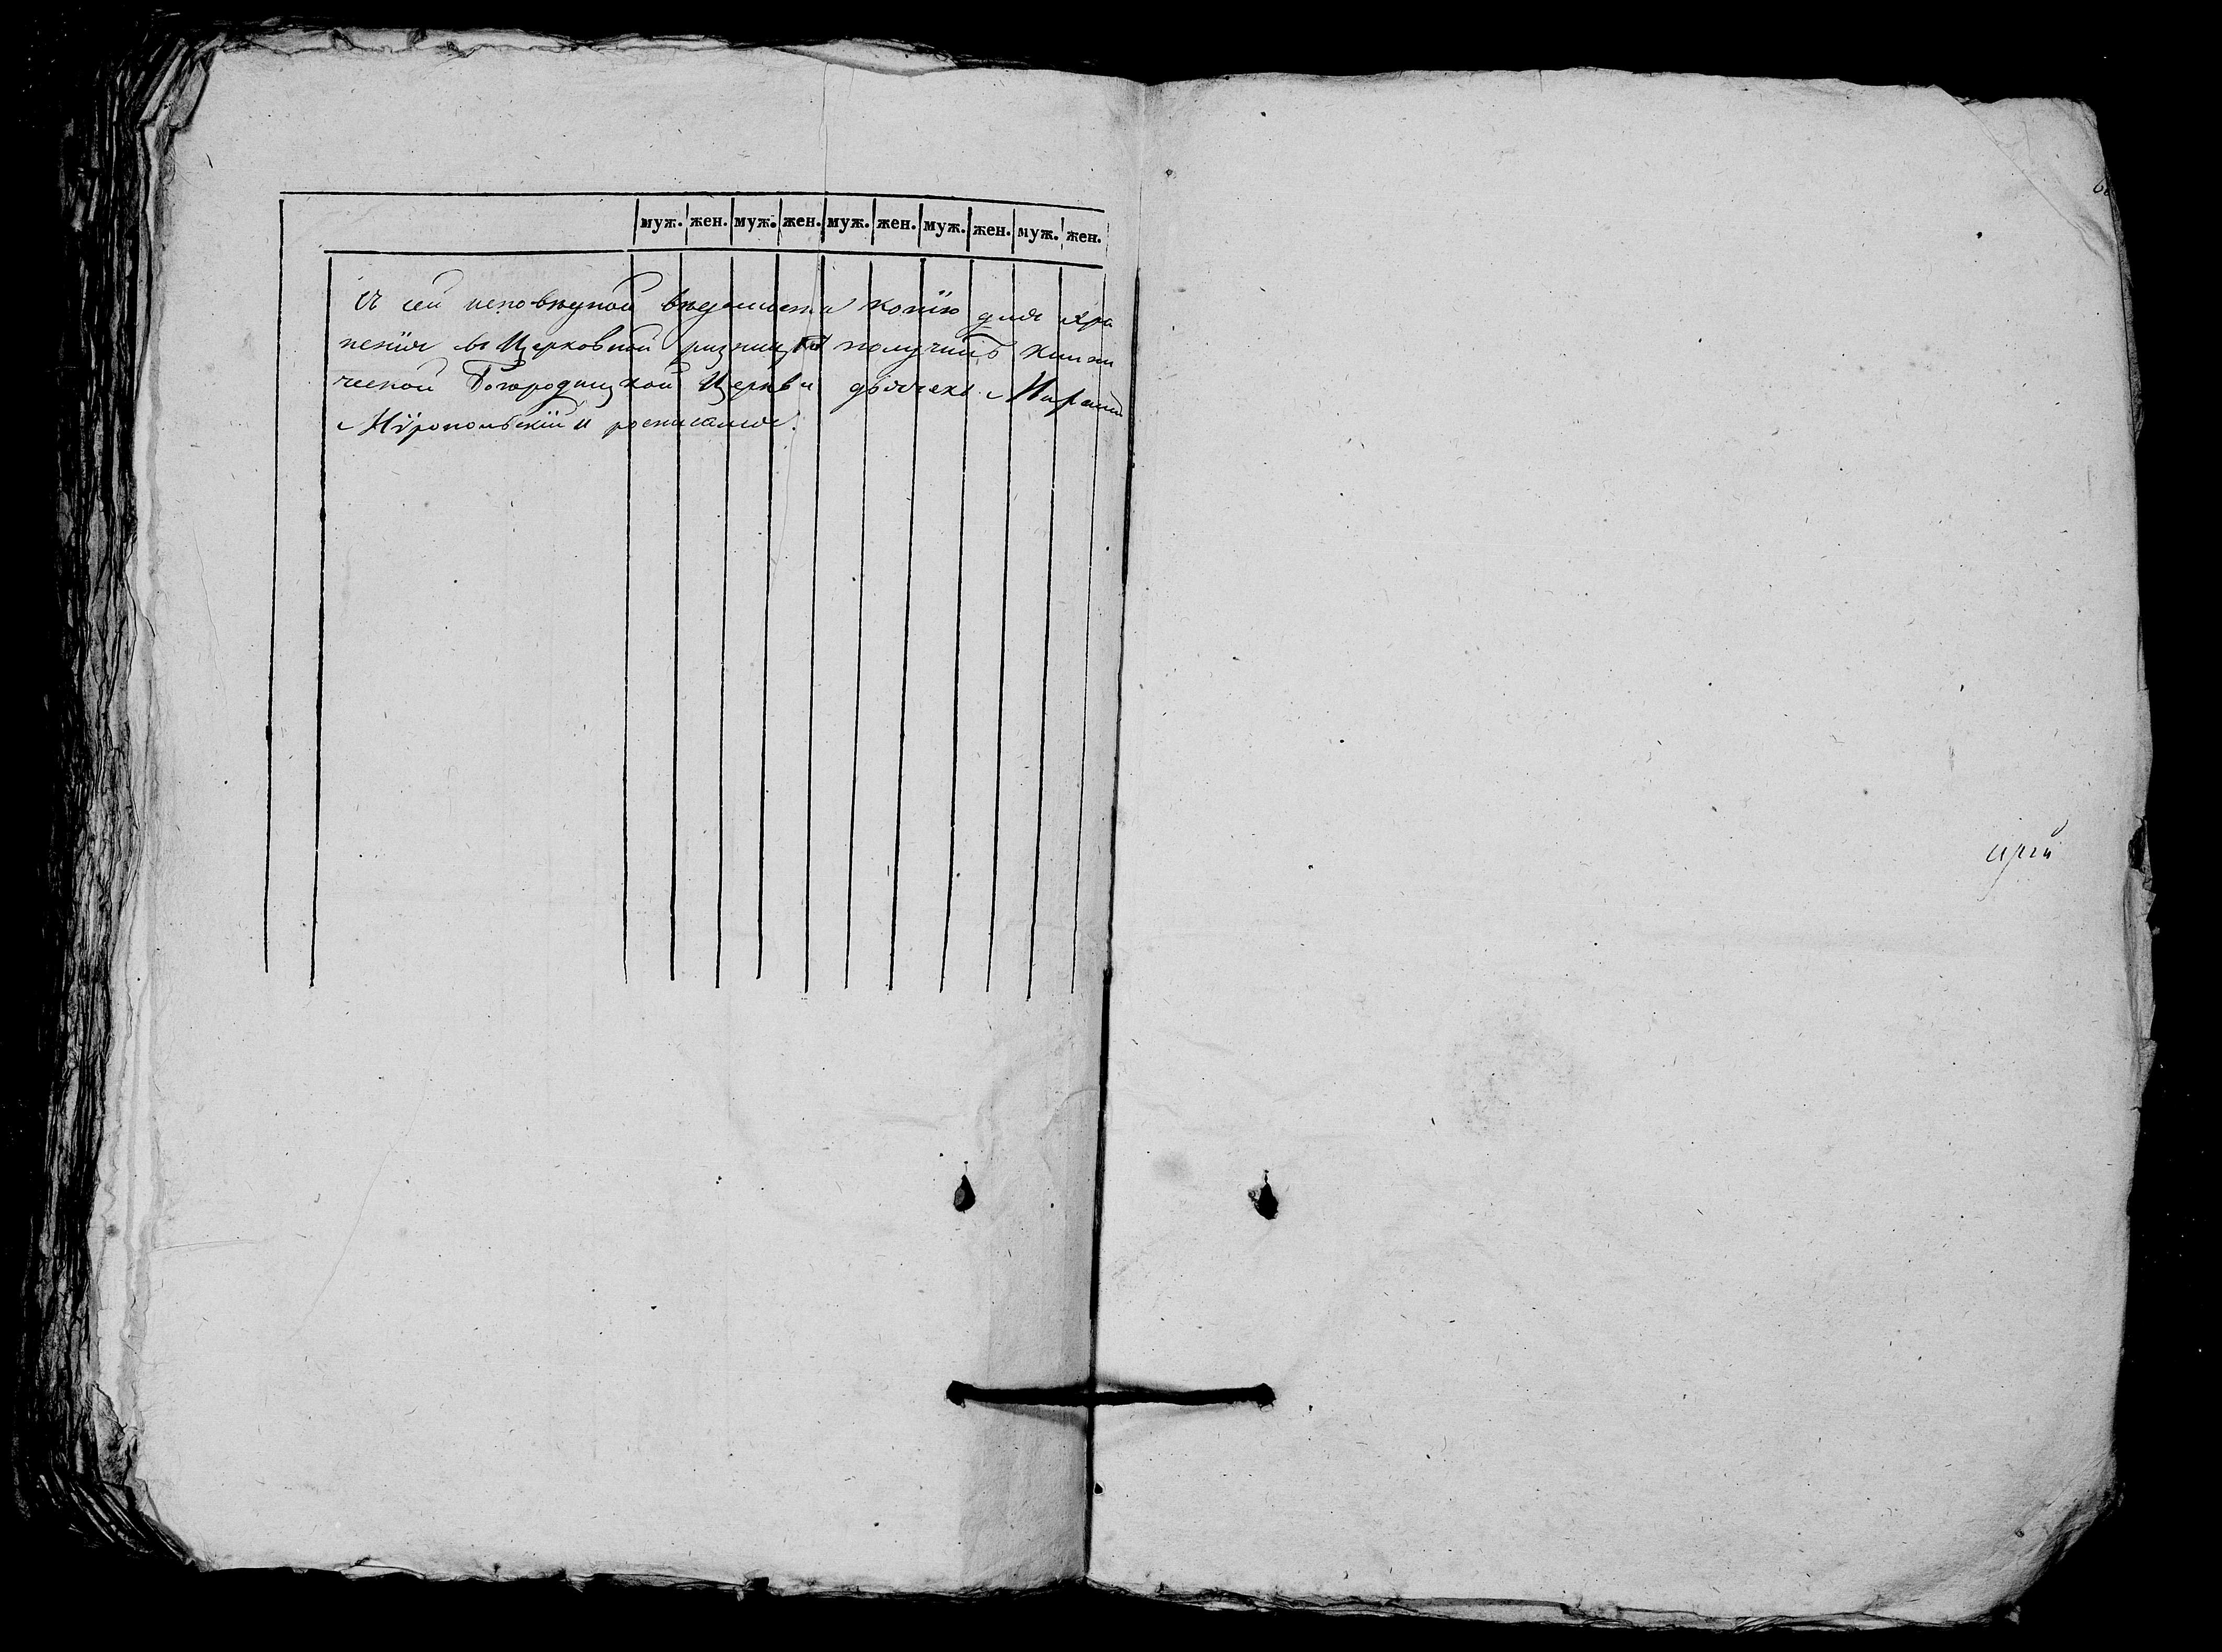 муж. жен. муж. жен. муж. жен. муж. жен. муж. жен.
Съ сей исповѣдной вѣдомости копію для хра
ненія въ Церковной ризницѣ получилъ
ческой Богородицкой Церкви дьячекъ
Міропольскій и росписался.